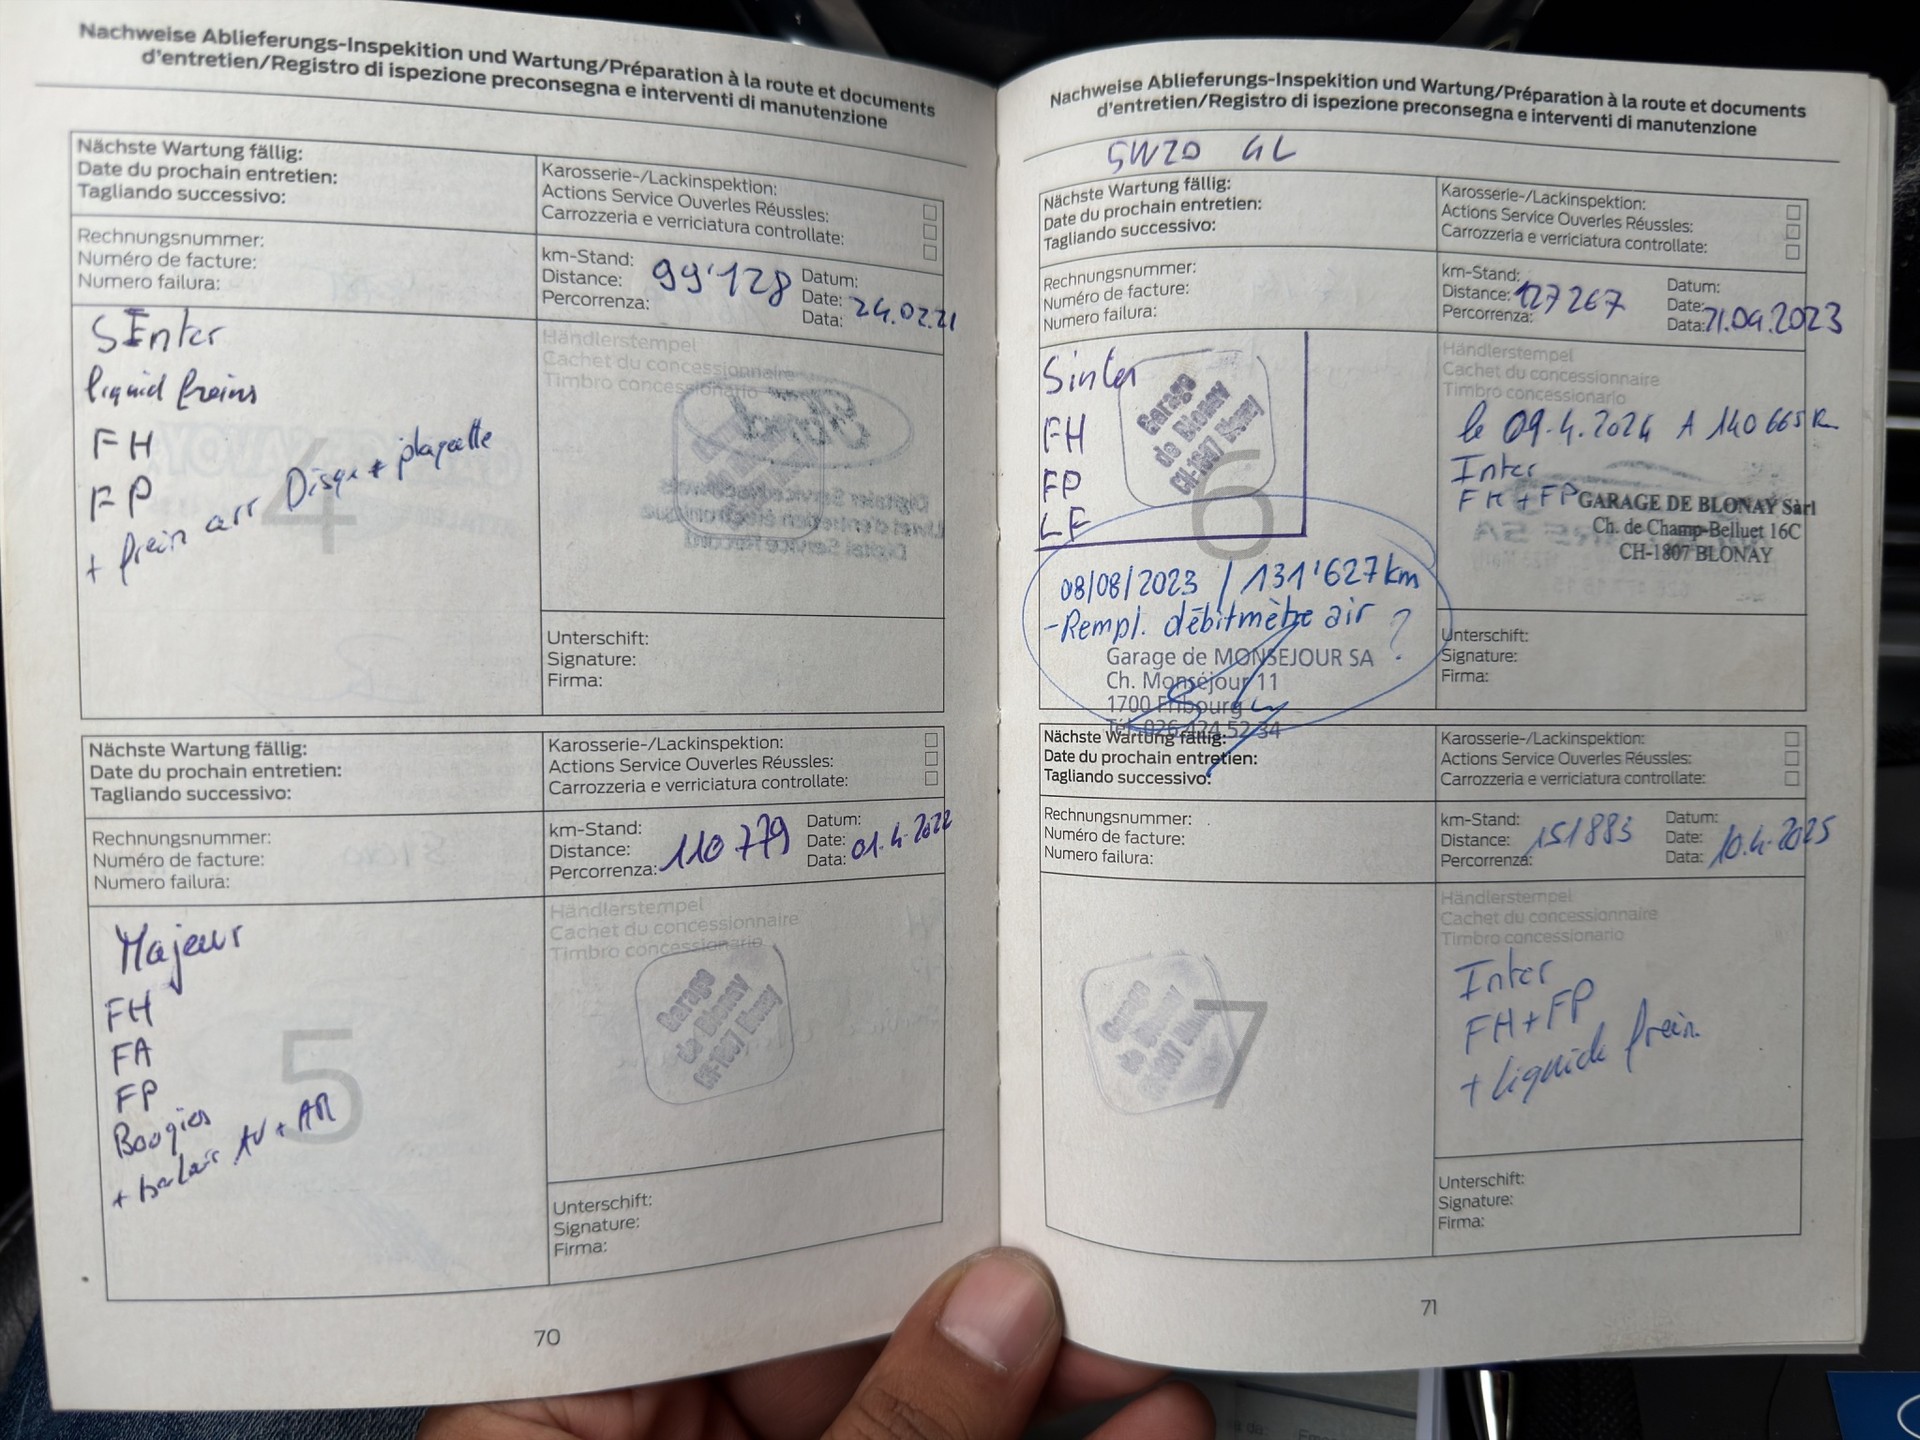 Nachweise Ablieferungs-Inspekition und Wartung/Préparation à la route et documents
d'entretien/Registro di ispezione preconsegna e interventi di manutenzione
Nächste Wartung fällig:
Date du prochain entretien:
Tagliando successivo:
Karosserie-/Lackinspektion:
Actions Service Ouverles Réussles:
Carrozzeria e verriciatura controllate:
Rechnungsnummer:
Numéro de facture:
Numero failura:
km-Stand:
Distance: 99'128
Percorrenza:
Datum:
Date: 24.02.21
Data:
SInter
liquid freins
FH
FP
+ frein arr Disque + plaquette
4
Händlerstempel
Cachet du concessionnaire
Timbro concessionario
Unterschift:
Signature:
Firma:
Nächste Wartung fällig:
Date du prochain entretien:
Tagliando successivo:
Karosserie-/Lackinspektion:
Actions Service Ouverles Réussles:
Carrozzeria e verriciatura controllate:
Rechnungsnummer:
Numéro de facture:
Numero failura:
km-Stand:
Distance: 110 779
Percorrenza:
Datum:
Date: 01.4.2022
Data:
Majeur
FH
FA
FP
Bougies
+ balais AV + AR
5
Händlerstempel
Cachet du concessionnaire
Timbro concessionario
Garage
de Blonay
CH-1807 Blonay
Unterschift:
Signature:
Firma:
70
Nachweise Ablieferungs-Inspekition und Wartung/Préparation à la route et documents
d'entretien/Registro di ispezione preconsegna e interventi di manutenzione
5W20 4L
Nächste Wartung fällig:
Date du prochain entretien:
Tagliando successivo:
Karosserie-/Lackinspektion:
Actions Service Ouverles Réussles:
Carrozzeria e verriciatura controllate:
Rechnungsnummer:
Numéro de facture:
Numero failura:
km-Stand:
Distance: 127 267
Percorrenza:
Datum:
Date:
Data: 21.04.2023
Sinter
FH
FP
LF
Garage
de Blonay
CH-1807 Blonay
6
08/08/2023 / 131'627 km
- Rempl. débitmètre air ?
Garage de MONSEJOUR SA
Ch. Monséjour 11
1700 Fribourg
Tél. 026 424 52 34
Händlerstempel
Cachet du concessionnaire
Timbro concessionario
le 09.4.2024 A 140 665 K
Inter
FH + FP
GARAGE DE BLONAY Sàrl
Ch. de Champ-Belluet 16C
CH-1807 BLONAY
Unterschift:
Signature:
Firma:
Nächste Wartung fällig:
Date du prochain entretien:
Tagliando successivo:
Karosserie-/Lackinspektion:
Actions Service Ouverles Réussles:
Carrozzeria e verriciatura controllate:
Rechnungsnummer:
Numéro de facture:
Numero failura:
km-Stand:
Distance: 151883
Percorrenza:
Datum:
Date: 10.4.2025
Data:
Garage
de Blonay
CH-1807 Blonay
7
Händlerstempel
Cachet du concessionnaire
Timbro concessionario
Inter
FH + FP
+ liquide frein
Unterschift:
Signature:
Firma:
71